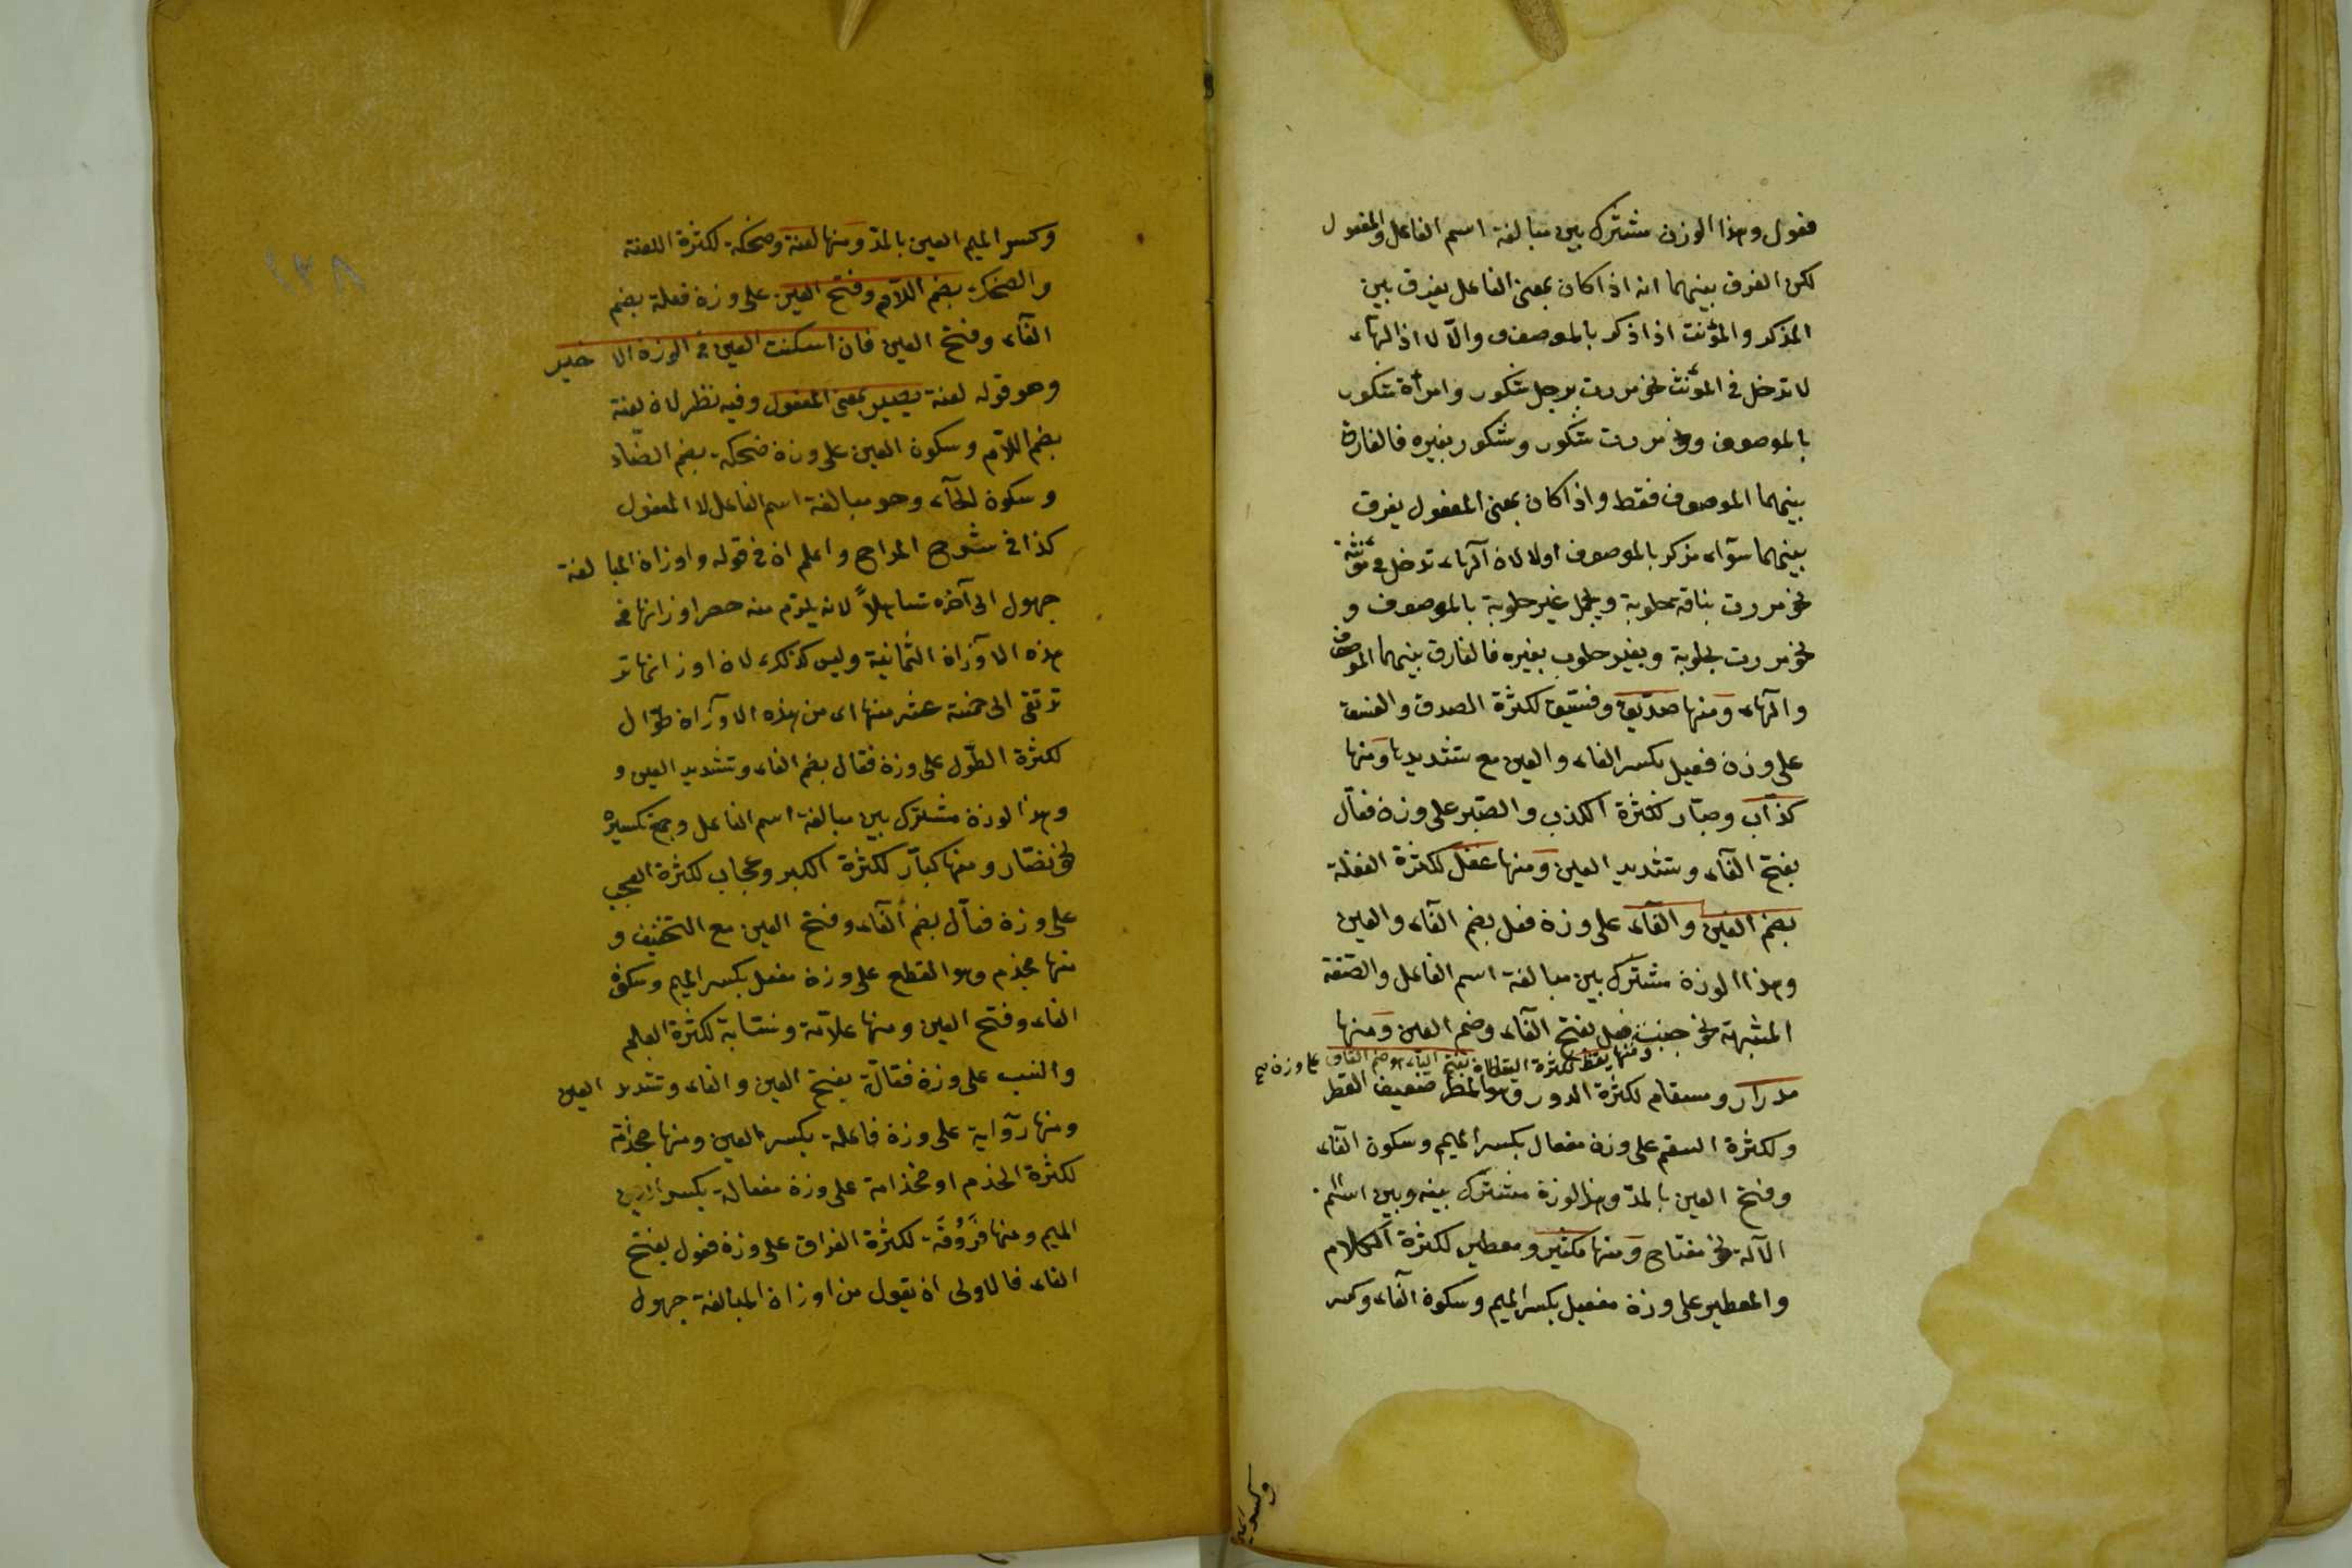 فعول وهذا الوزن مشترك بين مبالغة اسم الفاعل والمفعول
لكن الفرق بينهما انه اذا كان بمعنى الفاعل يفرق بين
المذكر والمؤنث اذا ذكر بالموصوف والّا لا اذ الهآء
لا تدخل في المؤنث نحو مررت برجل شكور وامرأة شكور
بالموصوف ونحو مررت شكور وشكور بغيره فالفارق
بينهما الموصوف فقط واذا كان بمعنى المفعول يفرق
بينهما سوآء مذكر بالموصوف اولا لان الهآء تدخل في مؤنثه
نحو مررت بناقة حلوبة وبجمل غير حلوبة بالموصوف و
نحو مررت بحلوبة وبغير حلوب بغيره فالفارق بينهما الموصوف
والهآء ومنها صدّيق وفسّيق لكثرة الصدق والفسق
على وزن فعيل بكسر الفاء والعين مع تشديدها ومنها
كذّاب وصبّار لكثرة الكذب والصّبر على وزن فعّال
بفتح الفآء وتشديد العين ومنها غفل لكثرة الغفلة
بضم الغين والفآء على وزن فعل بضم الفآء والعين
وهذا الوزن مشترك بين مبالغة اسم الفاعل والصّفة
المشبهة نحو جنب فعل بفتح الفآء وضم العين ومنها
ومنها يقظ لكثرة اليقظان بفتح الياء وضم القاف على وزن صح
مدرار ومسقام لكثرة الدور وهو المطر ضعيف القطر
ولكثرة السقم على وزن مفعال بكسر الميم وسكون الفآء
وفتح العين بالمدّ وهذا الوزن مشترك بينه وبين اسم
الآلة نحو مفتاح ومنها مكثير ومعطير لكثرة الكلام
والمعطير على وزن مفعيل بكسر الميم وسكون الفآء وكسر
وكسر الميم
وكسر الميم العين بالمدّ ومنها لعنة وضحكة لكثرة اللعنة
والضحك بضم اللّام وفتح العين على وزن فعلة بضم
الفآء وفتح العين فان اسكنت العين في الوزن الاخير
وهو قوله لعنة يصير بمعنى المفعول وفيه نظر لان لعنة
بضم اللّام وسكون العين على وزن ضحكة بضم الضّاد
وسكون الحآء وهو مبالغة اسم الفاعل لا المفعول
كذا في شروح المراح واعلم ان في قوله واوزان المبالغة
جهول الى آخره تساهلاً لانه يلزم منه حصر اوزانها في
هذه الاوزان الثمانية وليس كذلك لان اوزانها تر
ترتقى الى خمسة عشر منها اى من هذه الاوزان طوّال
لكثرة الطّول على وزن فعّال بضم الفاء وتشديد العين و
وهذا لوزن مشترك بين مبالغة اسم الفاعل وجمع تكسيره
نحو نصّار ومنها كبار لكثرة الكبر وعجاب لكثرة العجب
على وزن فعال بضم الفآء وفتح العين مع التخفيف و
منها مجذم وهو المقطع على وزن مفعل بكسر الميم وسكون
الفاء وفتح العين ومنها علّامة ونسّابة لكثرة العلم
والنسب على وزن فعّالة بفتح العين والفاء وتشديد العين
ومنها روآية على وزن فاعلة بكسر العين ومنها مجذامة
لكثرة الجذم او مخذامة على وزن مفعالة بكسر
الميم ومنها فَرُوُقَة لكثرة الفراق على وزن فعول بفتح
الفاء فالاولى ان يقول من اوزان المبالغة جهول
١٣٨